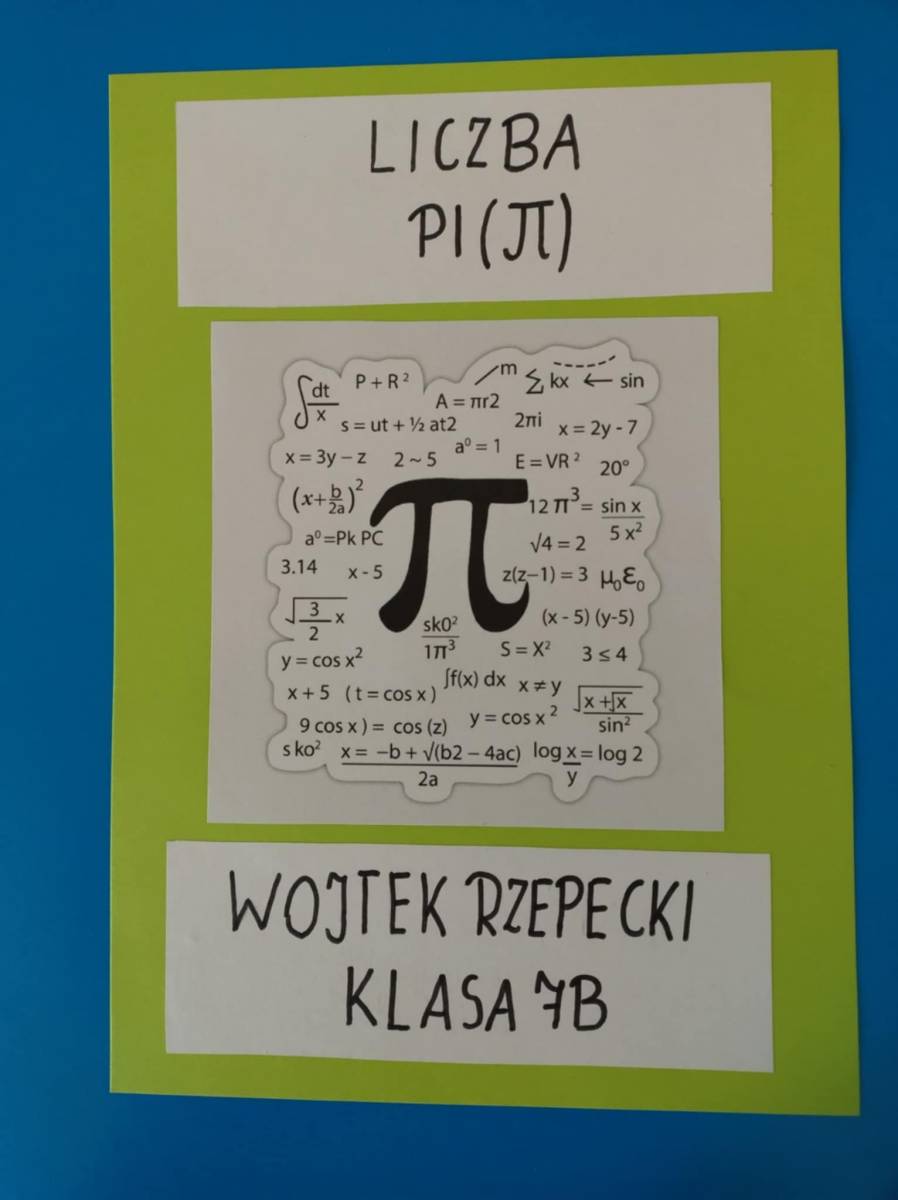 LICZBA
PI (π)
∫dt/x P + R² m ∑ kx ← sin
A = πr2
s = ut + ½ at2 2πi x = 2y - 7
x = 3y – z 2 ~ 5 a⁰ = 1 E = VR² 20°
(x+b/2a)² π 12 π³ = sin x/5 x²
a⁰=Pk PC √4 = 2
3.14 x - 5 z(z–1) = 3 μ₀ε₀
√3/2 x sk0²/1π³ (x - 5) (y-5)
y = cos x² S = X² 3 ≤ 4
x + 5 ( t = cos x ) ∫f(x) dx x ≠ y √x +√x/sin²
9 cos x ) = cos (z) y = cos x²
s ko² x = –b + √(b2 – 4ac)/2a log x/y = log 2
WOJTEK RZEPECKI
KLASA 7B